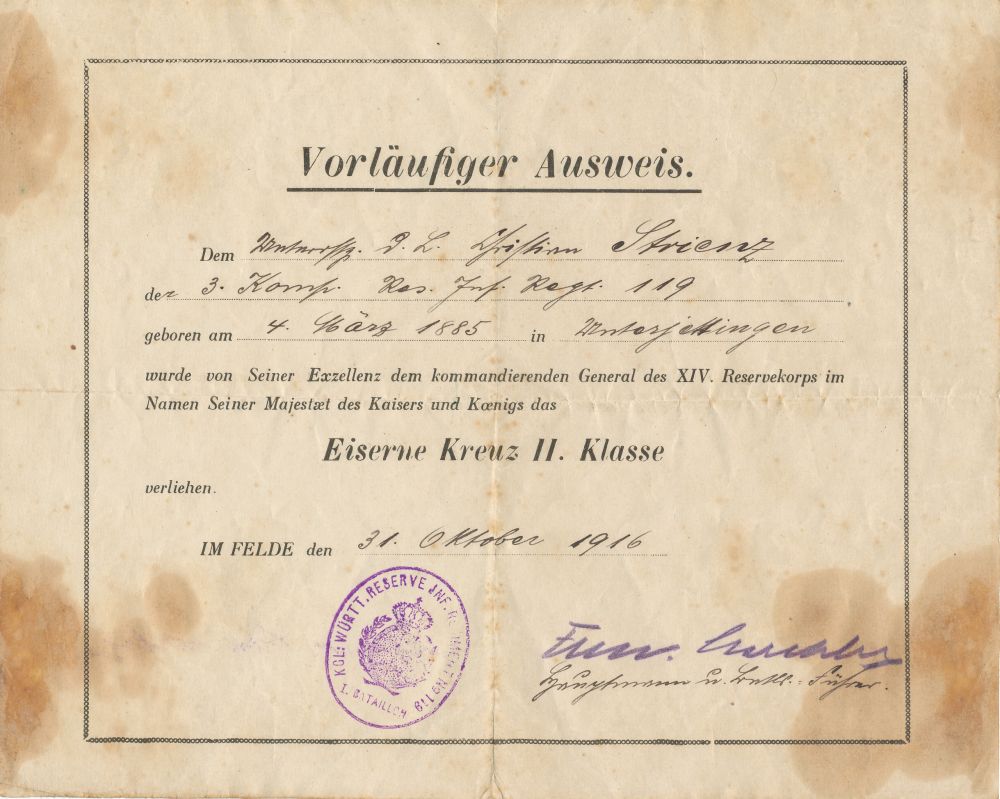 Vorläufiger Ausweis.
Dem Unteroffz. d. L. Christian Strienz
der 3. Komp. Res. Inf. Regt. 119
geboren am 4. März 1885 in Unterjettingen
wurde von Seiner Exzellenz dem kommandierenden General des XIV. Reservekorps im
Namen Seiner Majestæt des Kaisers und Kœnigs das
Eiserne Kreuz II. Klasse
verliehen.
IM FELDE den 31. Oktober 1916
KGL: WÜRTT. RESERVE INF. REGIMENT No 119
I. BATAILLON
Hauptmann u. Batls.-Führer.